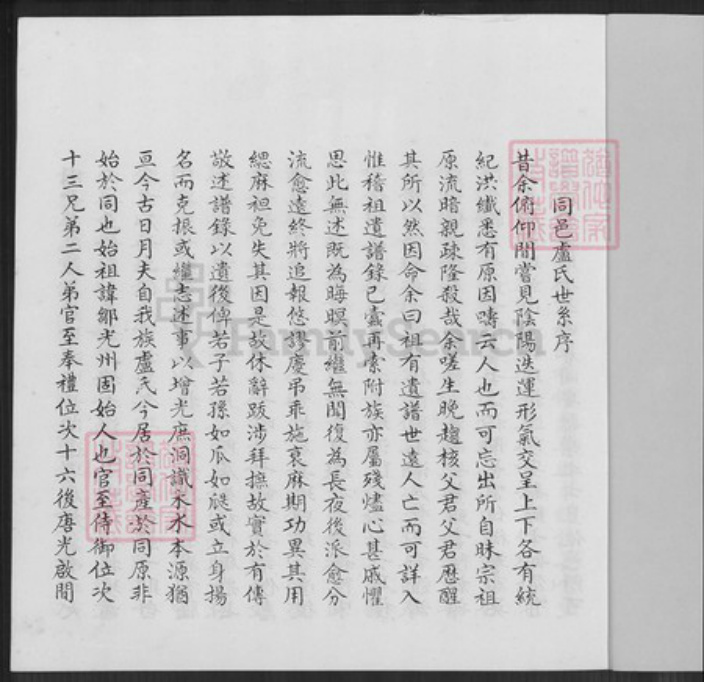 同邑盧氏世系序
昔余俯仰間嘗見陰陽迭運形氣交呈上下各有統
紀洪纖悉有原因嚋云人也而可忘出所自昧宗祖
原流暗親疎隆殺哉余嗟生晚趨核父君父君歷醒
其所以然因命余曰祖有遺譜世遠人亡而可詳入
惟稽祖遺譜錄已蠧再索附族亦屬殘燼心甚戚懼
思此無述既為晦暝前繼無聞復為長夜後派愈分
流愈遠終將追報悠謬慶吊乖施衰麻期功異其用
緦麻袒免失其因是故休辭跋涉拜撫故實於有傳
敬述譜錄以遺後俾若子若孫如瓜如瓞或立身揚
名而克振或繼志述事以增光庶洞識木水本源猶
亘今古日月夫自我族盧氏今居於同產於同原非
始於同也始祖諱鄒光州固始人也官至侍御位次
十三兄弟二人弟官至奉禮位次十六後唐光啟間
FamilySearch